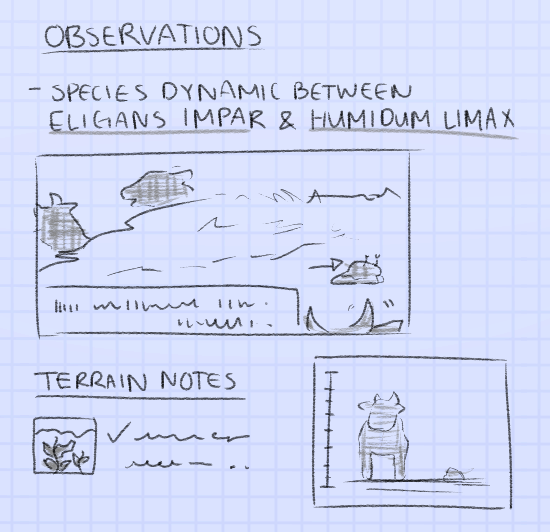 OBSERVATIONS
- SPECIES DYNAMIC BETWEEN
ELIGANS IMPAR & HUMIDUM LIMAX
TERRAIN NOTES